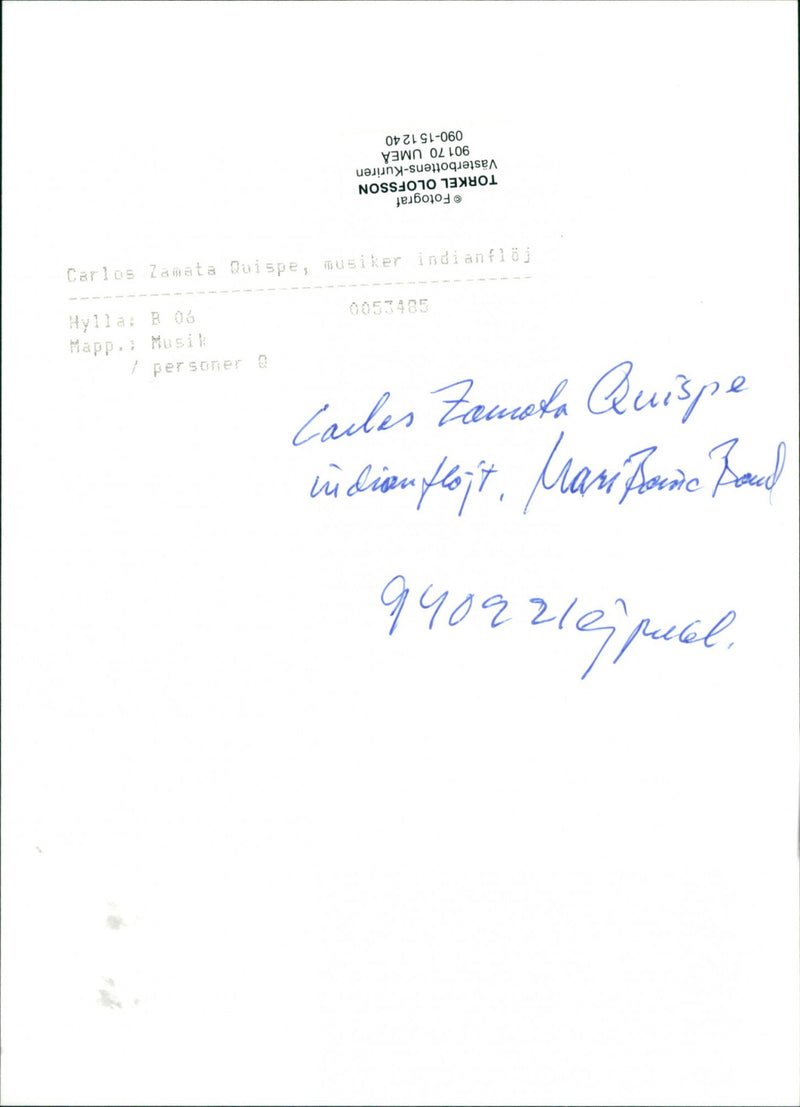 © Fotograf
TORKEL OLOFSSON
Västerbottens-Kuriren
90170 UMEÅ
090-151240
Carlos Zamata Quispe, musiker indianflöj
Hylla: B 06 0053485
Mapp.: Musik
/ personer Q
Carlos Zamata Quispe
indianflöjt, Mari Boine Band
940221 ej publ.